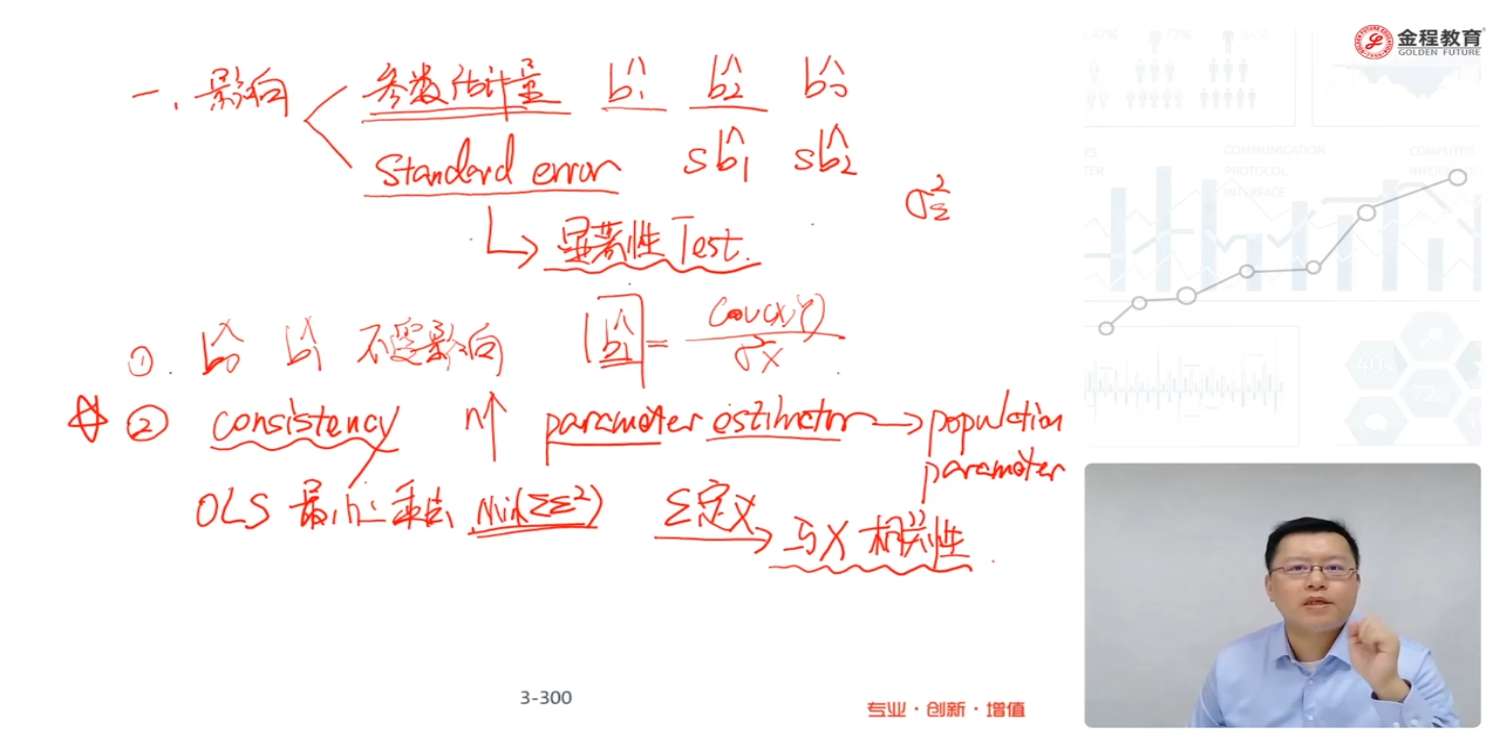 金程教育
GOLDEN FUTURE
一、影响 参数估计量 b̂1 b̂2 b̂0
Standard error sb̂1 sb̂2
σ²ε
显著性 Test.
①. b̂0 b̂1 不受影响 |b̂1| = Cov(X,Y) / σ²X
② consistency n↑ parameter estimator → population
parameter
OLS 最小二乘法 Min(Σε²) Σ定义 → 与X相关性.
COMMUNICATION
PROTOCOL
INTERFACE
3-300
专业·创新·增值